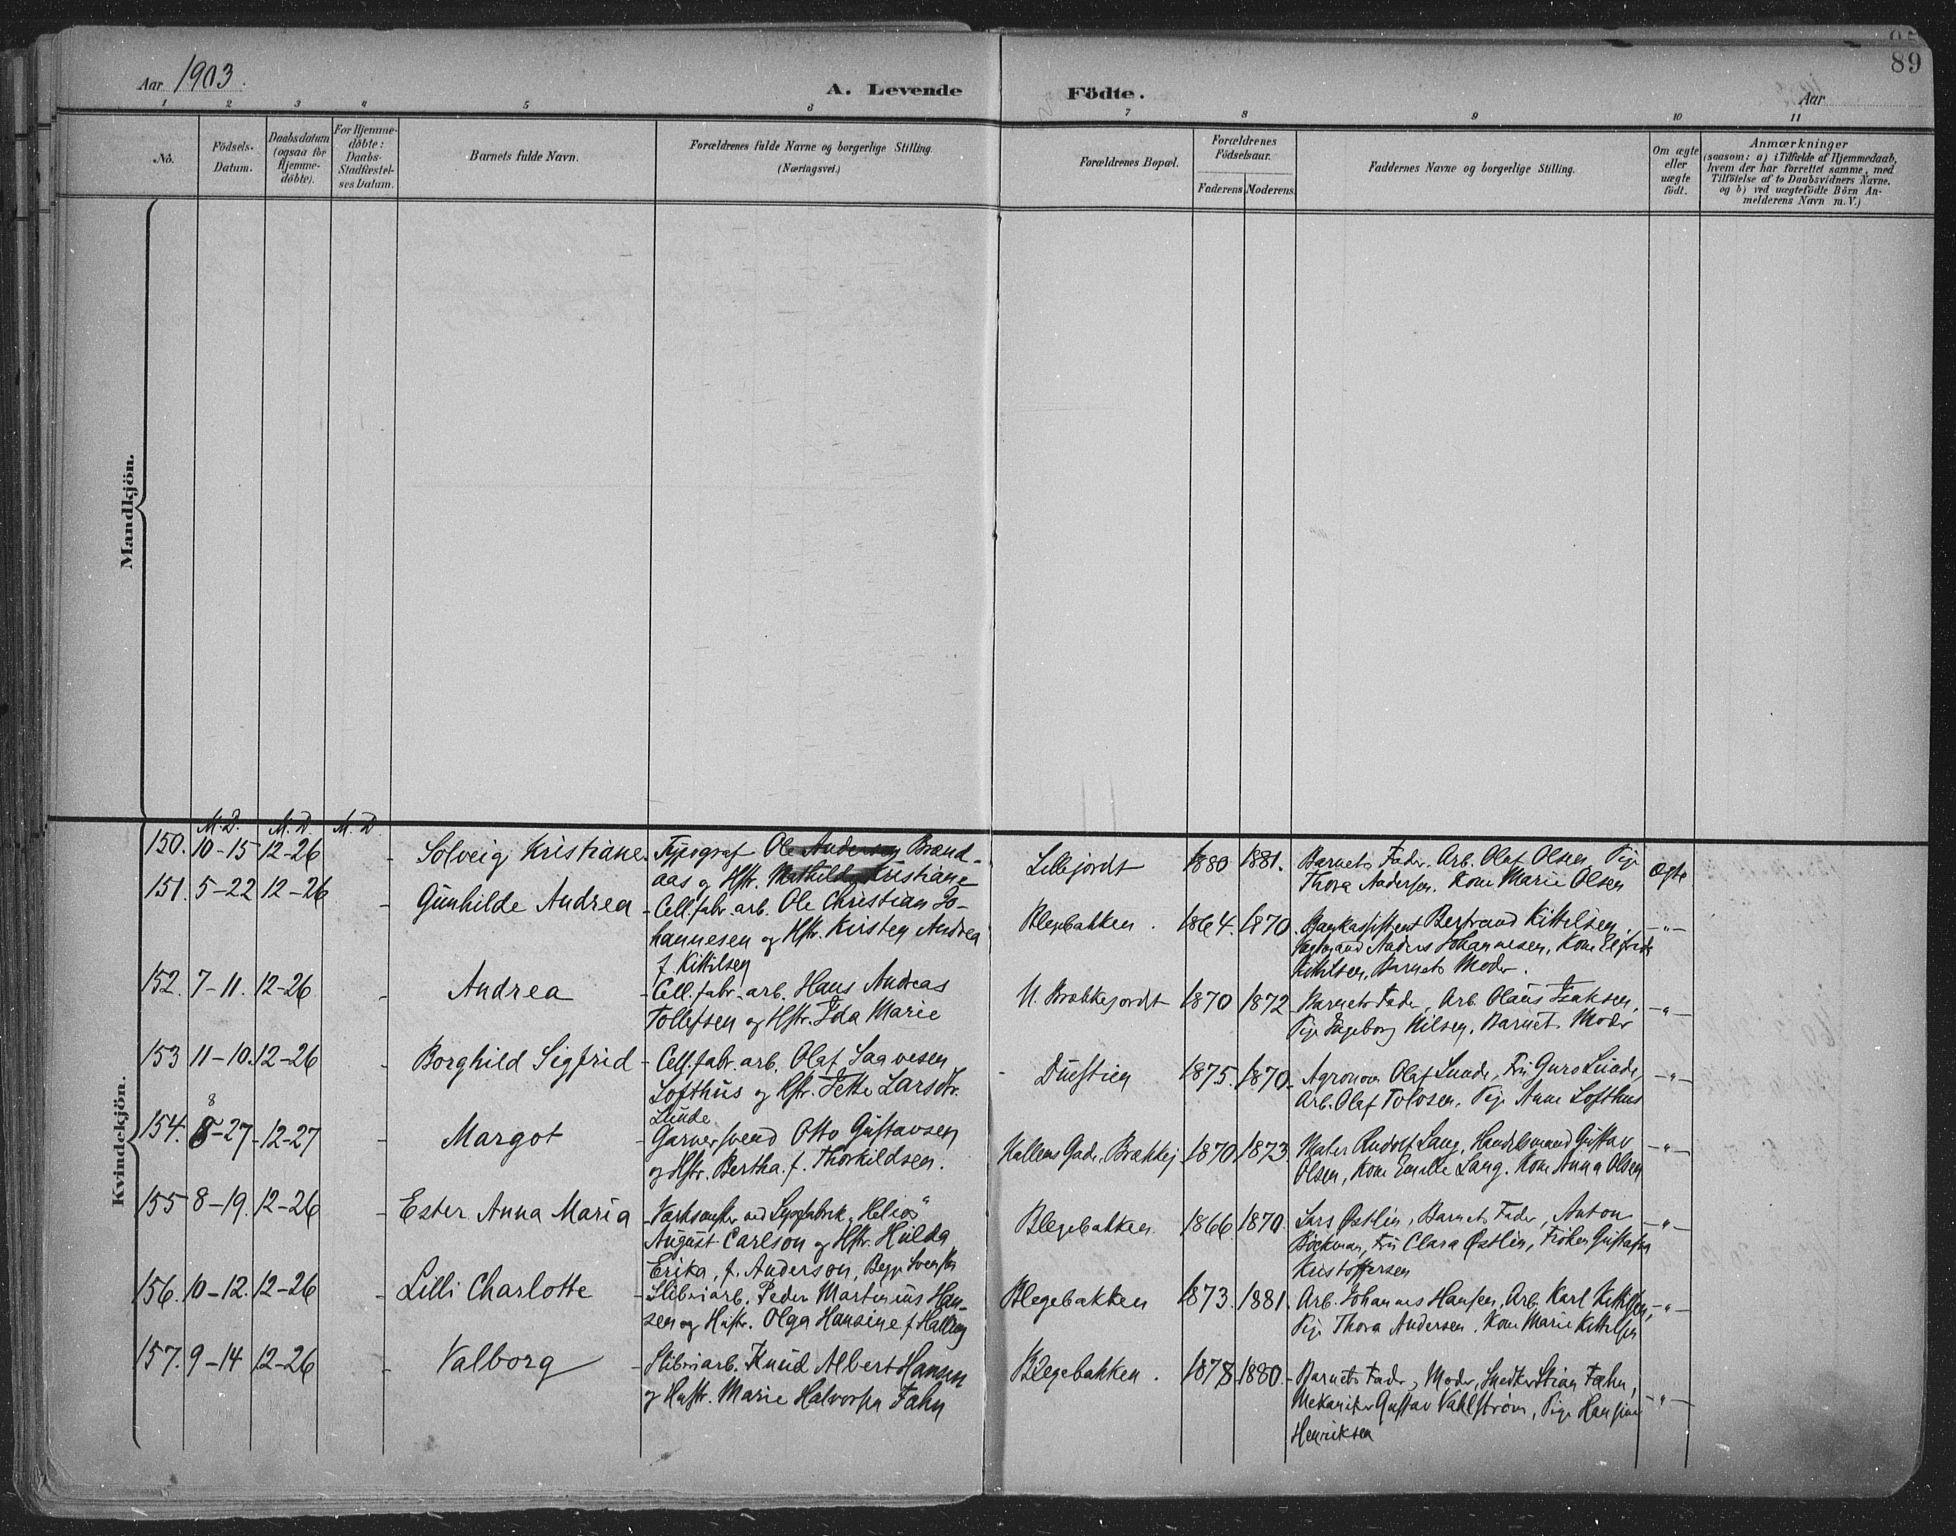 Aar 1903.
A. Levende Födte.
Aar
89
1 2 3 4 5 6 7 8 9 10 11
No.
Födsels-Datum.
Daabsdatum (ogsaa for Hjemme-döbte).
For Hjemme-döbte: Daabs-Stadfæstel-ses Datum.
Barnets fulde Navn.
Forældrenes fulde Navne og borgerlige Stilling. (Næringsvei.)
Forældrenes Bopæl.
Forældrenes Födselsaar.
Faderens Moderens
Faddernes Navne og borgerlige Stilling.
Om ægte eller uægte födt.
Anmærkninger
(saasom: a) i Tilfælde af Hjemmedaab,
hvem der har forrettet samme, med
Tilföielse af to Daabsvidners Navne.
og b) ved uægtefödte Börn An-
melderens Navn m. V.)
Mandkjön.
Kvindekjön.
M. D. M. D. M. D.
150. 10-15 12-26 - Solveig Kristiane - Typograf Ole Andersen Brænd-
aas og Hstr. Mathilde Kristiane
Lillejordt 1880 1881. Barnets Fader. Arb. Olaf Olsen, Pige
Thora Andersen. Kone Marie Olsen
Ægte
151. 5-22 12-26 - Gunhilde Andrea - Cell.fabr.arb. Ole Christian Jo-
hannesen og Hstr. Kirsten Andrea
f. Kittilsen
Blegebakken. 1864. 1870. Bankassistent Bertrand Kittilsen,
Anders Johannesen, Kone
Kittilsen, Barnets Moder.
-"-
152. 7-11. 12-26 - Andrea - Cell.fabr.arb. Hans Andreas
Tollefsen og Hstr. Ida Marie
N. Brækkejordt 1870 1872 Barnets Fader, Arb. Olaus Isaksen,
Pige Ingeborg Nilsen, Barnets Moder
-"-
153 11-10. 12-26 - Borghild Sigfrid - Cell.fabr.arb. Olaf Saavesen
Lofthus og Hstr. Larsdtr.
Lunde
Duestien 1875. 1870. Agronom Olaf Lunde, Fru Guro Lunde,
Arb. Olaf Tovsen, Pige Anne Lofthus
-"-
154. 8-27 12-27 - Margot - Garversvend Otto Gustavsen
og Hstr. Bertha f. Thorkildsen.
Hallens Gade, Brækkej 1870 1873 Maler Rudolf Lang, Handelsmand Gustav
Olsen, Kone Emelie Lang. Kone Anna Olsen
-"-
155 8-19. 12-26 - Ester Anna Maria - Værksmester ved Lysfabrik „Helios"
August Carlson og Hstr. Hulda
Erika, f. Anderson, Begge Svenske
Blegebakken 1866 1870. Lars Østlin, Barnets Fader, Anton
Böckman, Fru Clara Østlin, Fröken Gustafva
Kristoffersen
-"-
156. 10-12. 12-26 - Lilli Charlotte - Sliberiarb. Peder Martinius Han-
sen og Hustr. Olga Hansine f. Halling
Blegebakken 1873. 1881. Arb. Johannes Hansen, Arb. Karl Kittilsen,
Pige Thora Andersen. Kone Marie Kittilsen
-"-
157. 9-14 12-26 - Valborg - Sliberiarb. Knud Albert Hansen
og Hustr. Marie Halvorsen Fæhn
Blegebakken. 1878 1880. Barnets Fader og Moder, Snedker Stian Fæhn,
Mekaniker Gustav Vahlström, Pige Hansine
Henriksen
-"-